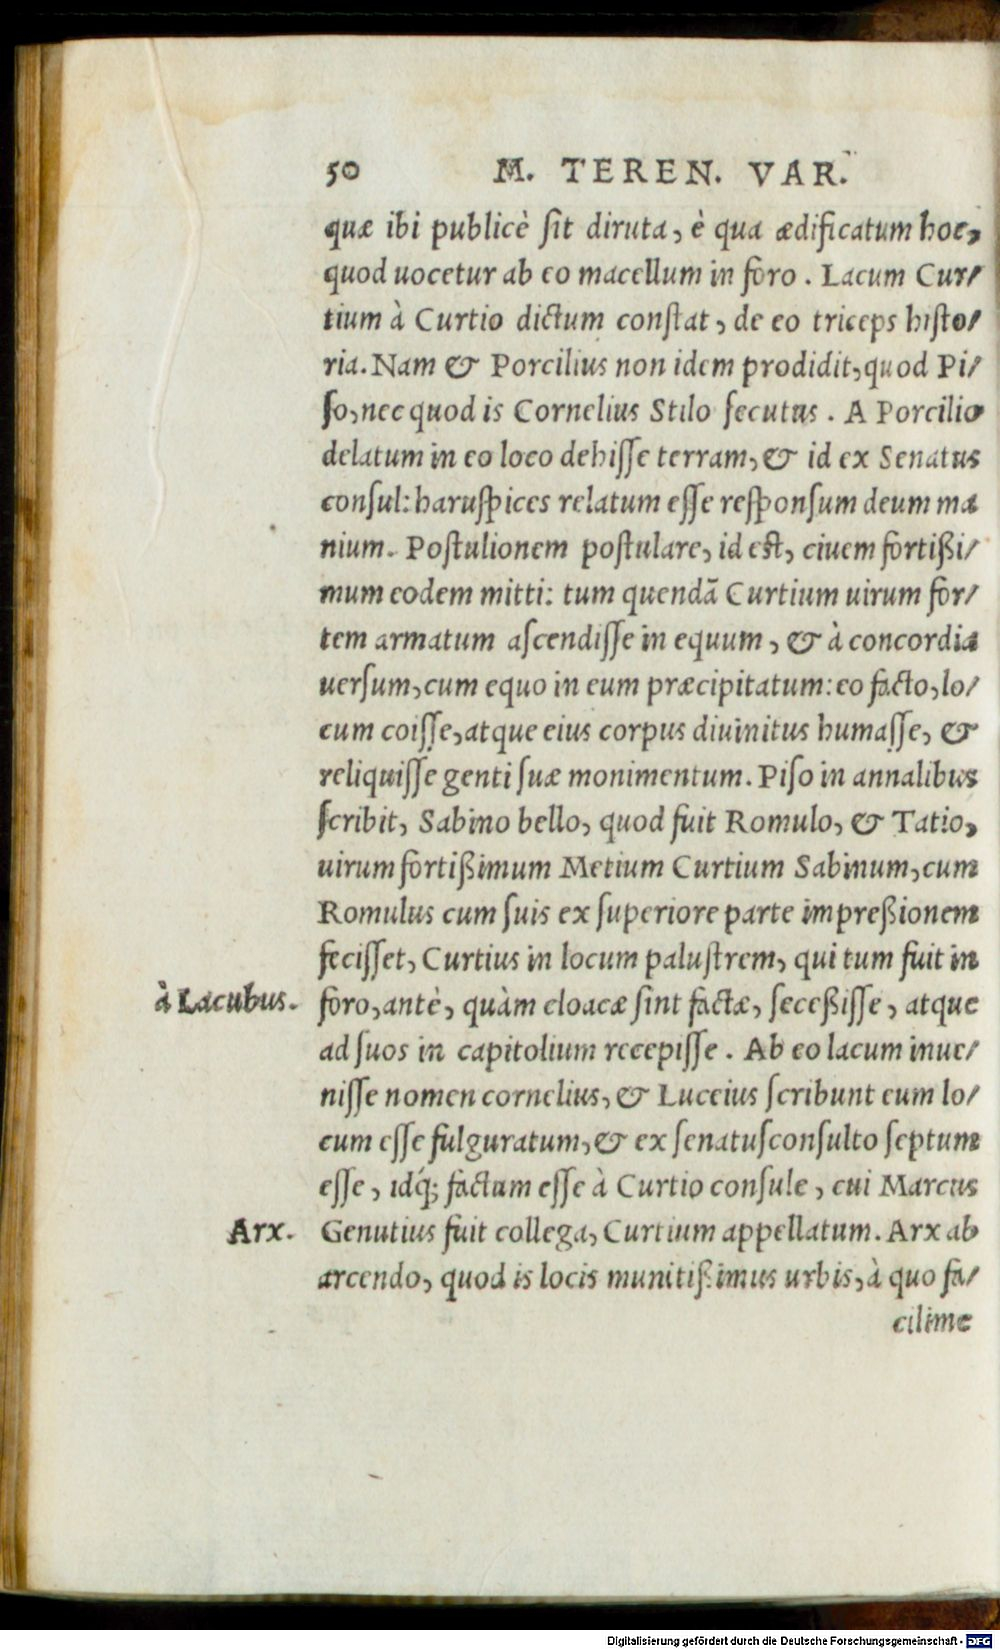 50 M. TEREN. VAR.
quæ ibi publicè ſit diruta, è qua ædificatum hoc,
quod uocetur ab eo macellum in foro. Lacum Cur/
tium à Curtio dictum conſtat, de eo triceps hiſto/
ria. Nam & Porcilius non idem prodidit, quod Pi/
ſo, nec quod is Cornelius Stilo ſecutus. A Porcilio
delatum in eo loco dehiſſe terram, & id ex Senatus
conſul: haruſpices relatum eſſe reſponſum deum ma
nium. Poſtulionem poſtulare, id eſt, ciuem fortißi/
mum eodem mitti: tum quendã Curtium uirum for/
tem armatum aſcendiſſe in equum, & à concordia
uerſum, cum equo in eum præcipitatum: eo facto, lo/
cum coiſſe, atque eius corpus diuinitus humaſſe, &
reliquiſſe genti ſuæ monimentum. Piſo in annalibus
ſcribit, Sabino bello, quod fuit Romulo, & Tatio,
uirum fortißimum Metium Curtium Sabinum, cum
Romulus cum ſuis ex ſuperiore parte impreßionem
feciſſet, Curtius in locum paluſtrem, qui tum fuit in
à Lacubus. foro, antè, quàm cloacæ ſint factæ, ſeceßiſſe, atque
ad ſuos in capitolium recepiſſe. Ab eo lacum inue/
niſſe nomen cornelius, & Luceius ſcribunt eum lo/
cum eſſe fulguratum, & ex ſenatusconſulto ſeptum
eſſe, idq́; factum eſſe à Curtio conſule, cui Marcus
Arx. Genutius fuit collega, Curtium appellatum. Arx ab
arcendo, quod is locis munitißimus urbis, à quo fa/
cilime
Digitalisierung gefördert durch die Deutsche Forschungsgemeinschaft - DFG